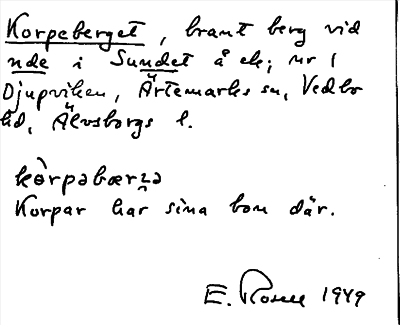 Korpeberget, brant berg vid
nde i Sundet å ek; nr 1
Djupviken, Ärtemarks sn, Vedbo
hd, Älvsborgs l.
kòrpəbærʒə
Korpar har sina bon där.
E. Rosell 1949